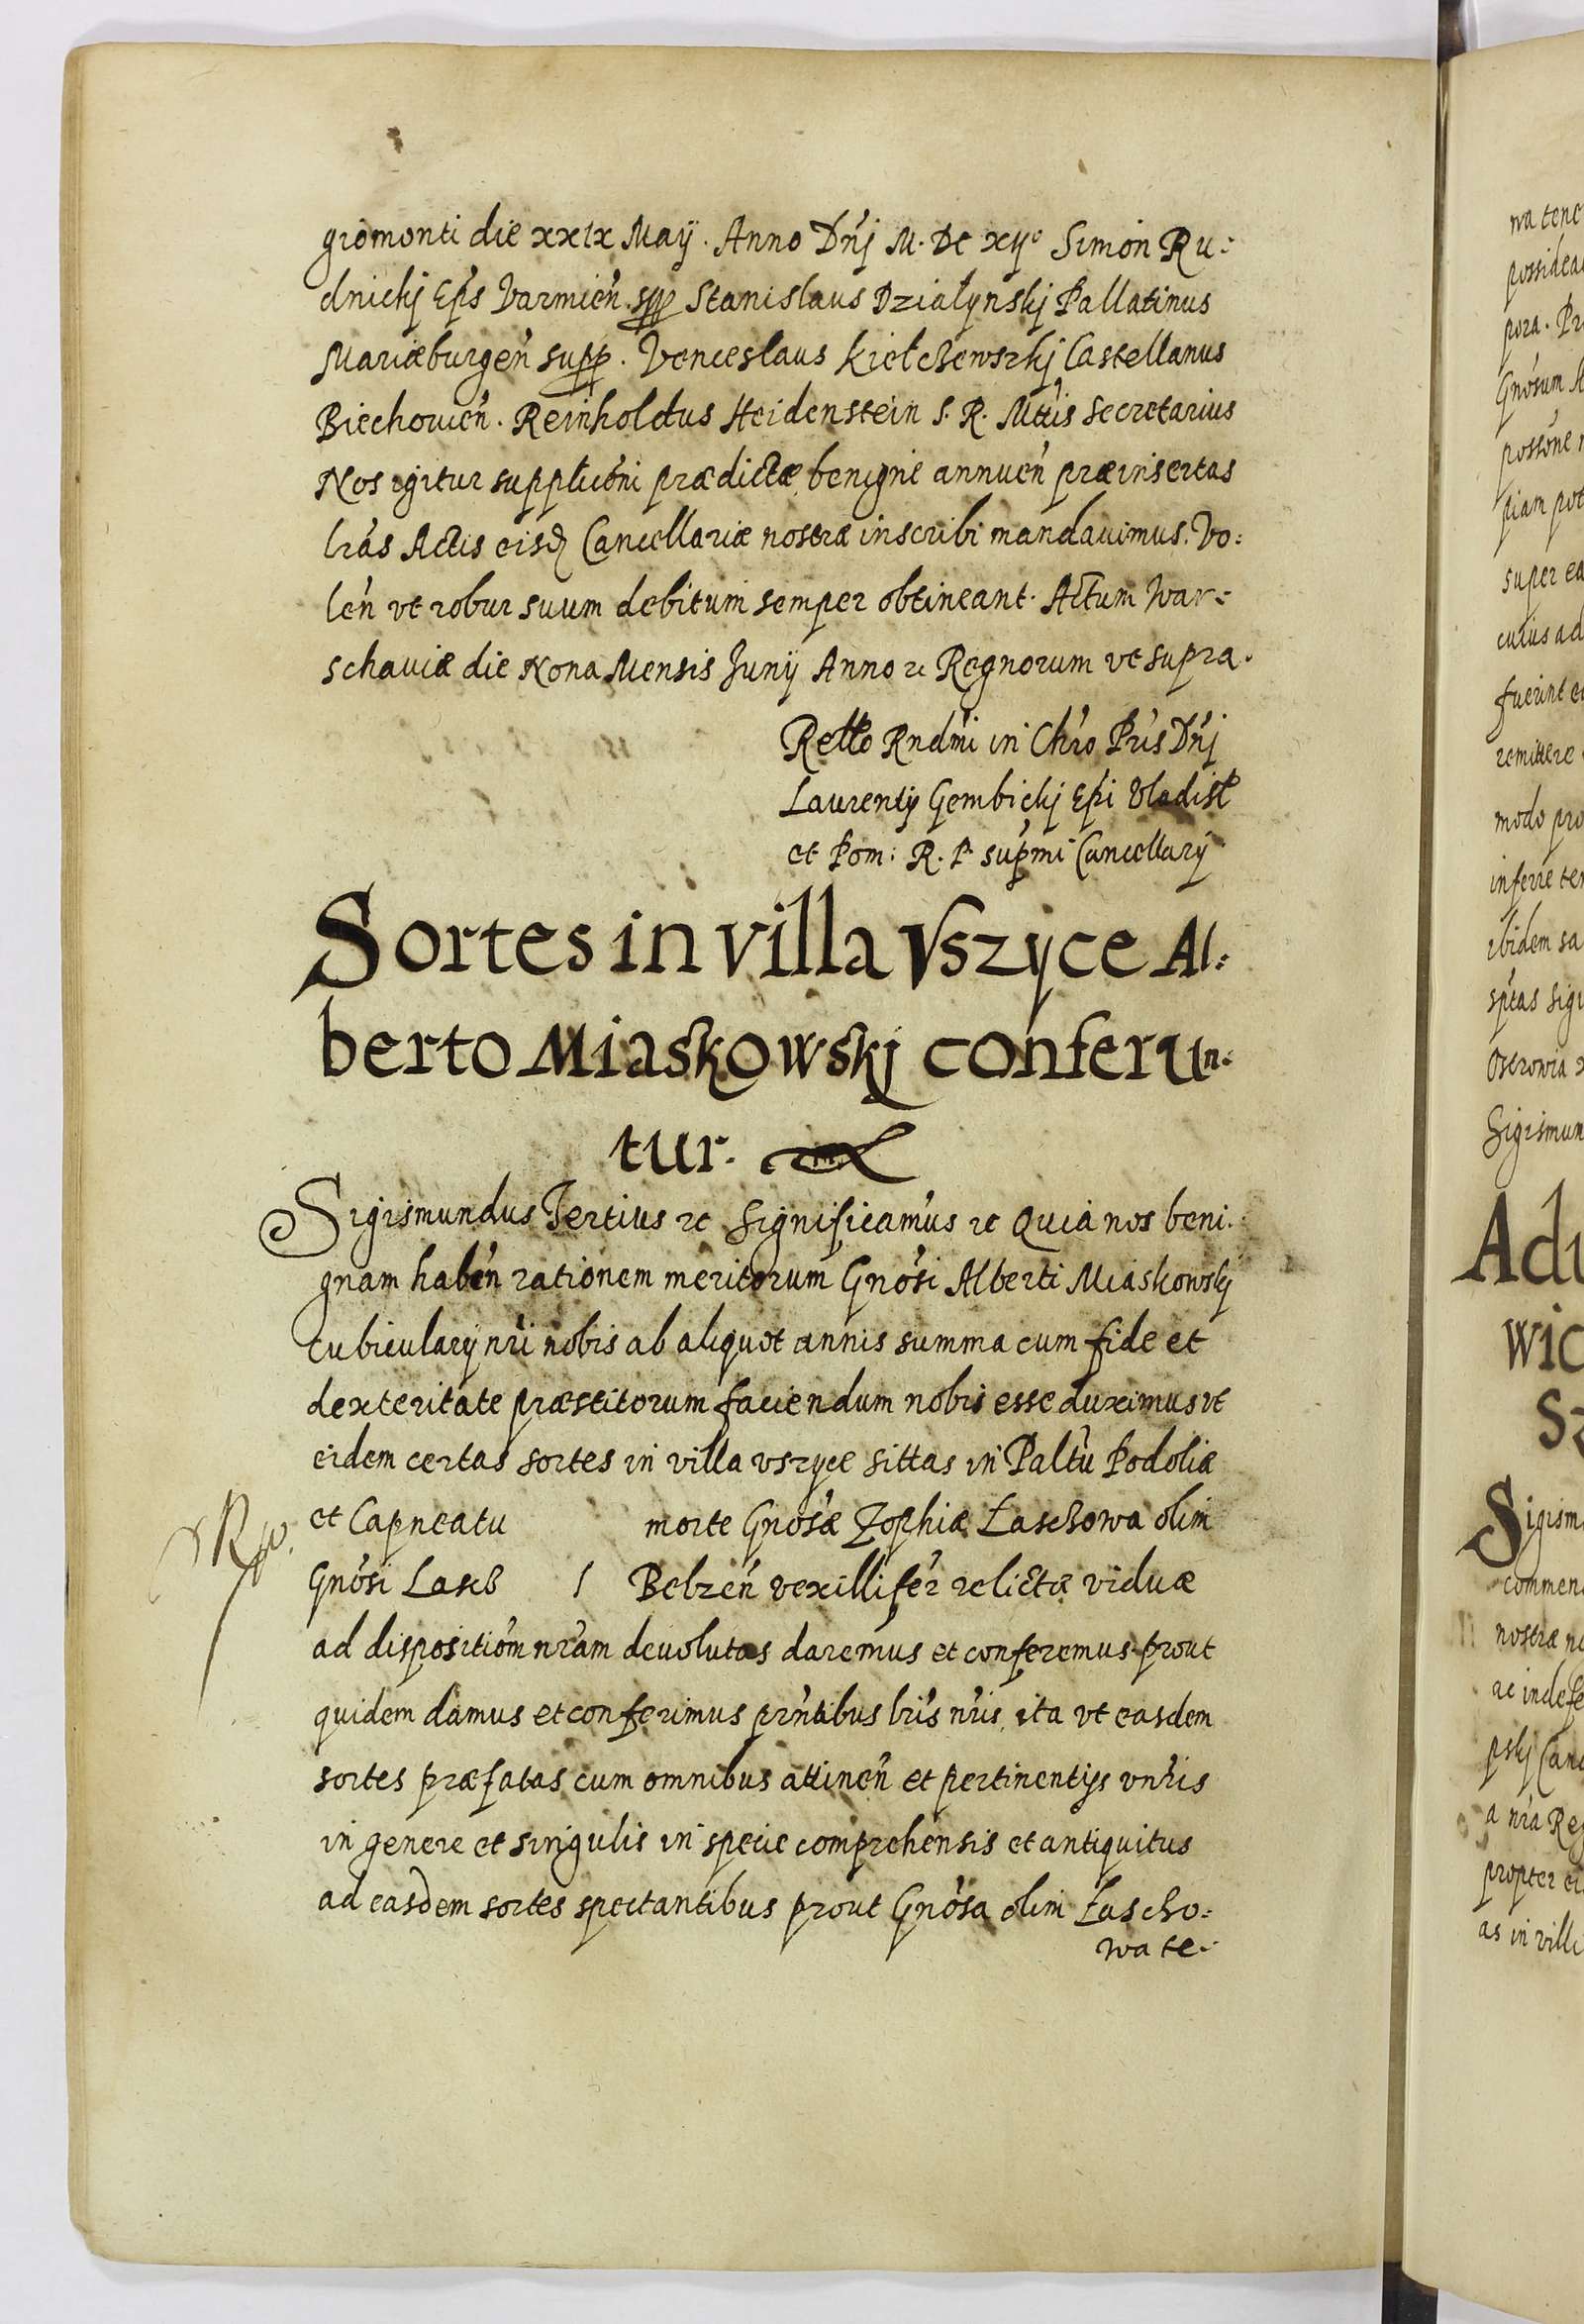 giomonti die xxix Maÿ. Anno Dn̄j M. DC xij° Simon Ru:
dnickj Ep̄s Varmien̄. spp Stanislaus Działynskj Pallatinus
Mariæburgen̄ supp. Venceslaus Kiełchewszkj Castellanus
Biechouien̄. Reinholdus Heidenstein S. R. Mttis Secretarius
Nos igitur supplictōni prædictæ benigne annuen̄ præinsertas
lrās Actis eisd Cancellariæ nostræ inscribi mandauimus. Vo:
len̄ vt robur suum debitum semper obtineant. Actum War:
schauiæ die Nona Mensis Junij Anno rc Regnorum vt supra.
Rello Rndm̄i in Chr̄o Pr̄is Dn̄j
Laurentij Gembickj Ep̄i Vladisl
et Pom: R. P. sup̄mi Cancellarÿ
Sortes in villa Vszyce Al:
berto Miaskowskj conferun:
tur.
Sigismundus Tertius rc Significam̄us rc Quia nos beni:
gnam haben̄ rationem meritorum Gnōsi Alberti Miaskowskj
cubicularÿ nr̄i nobis ab aliquot annis summa cum fide et
dexteritate præstitorum faciendum nobis esse duximus vt
eidem certas sortes in villa vszyce sittas in Paltū Podoliæ
et Capneatu morte Gnōsæ Zophiæ Laschowa olim
Gnōsi Lasch Belzen̄ vexillifer̄ relictæ viduæ
ad dispositiōm nr̄am deuolutas daremus et conferemus prout
quidem damus et conferimus prn̄tibus lrīs nr̄is, ita vt easdem
sortes præfatas cum omnibus attinen̄ et pertinentijs vnr̄is
in genere et singulis in specie comprehensis et antiquitus
ad easdem sortes spectantibus prout Gnōsa olim Lascho:
wa te:
wa tene
possidea
pora. Pr
Gnōsum A
possōne
piam pot
super ea
cuius ad
fuerint e
remittere
modo pro
inferre te
ibidem sa
sp̄tas Sigi
Ostrowia
Sigismun
Adu
wic
Sz
Sigism
commen
nostræ n
ac indefe
pskj Canc
a nr̄a Reg
propter e
as in villi